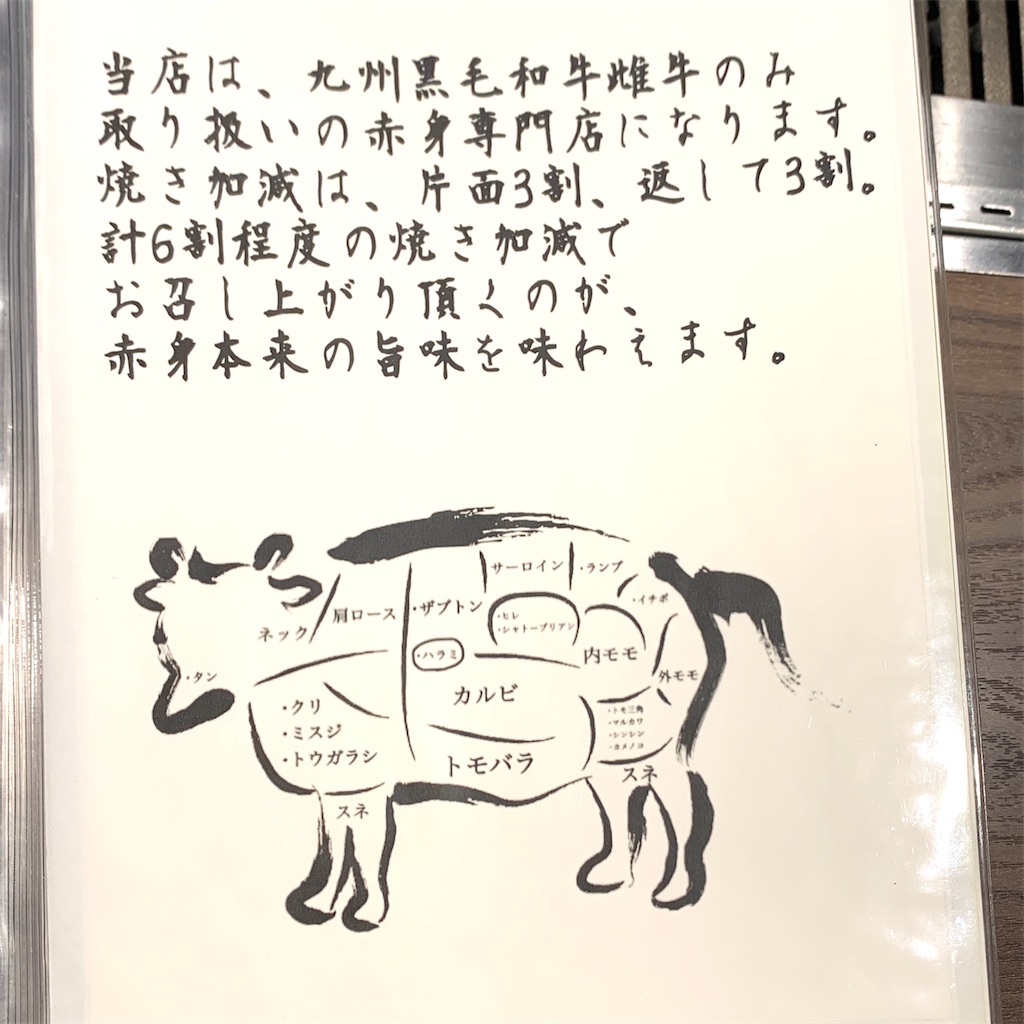 当店は、九州黒毛和牛雌牛のみ
取り扱いの赤身専門店になります。
焼き加減は、片面3割、返して3割。
計6割程度の焼き加減で
お召し上がり頂くのが、
赤身本来の旨味を味わえます。
サーロイン
・ランプ
・イチボ
ネック
肩ロース
・ザブトン
・ヒレ
・シャトーブリアン
・ハラミ
内モモ
外モモ
・タン
カルビ
・クリ
・ミスジ
・トウガラシ
・トモ三角
・マルカワ
・シンシン
・カメノコ
トモバラ
スネ
スネ